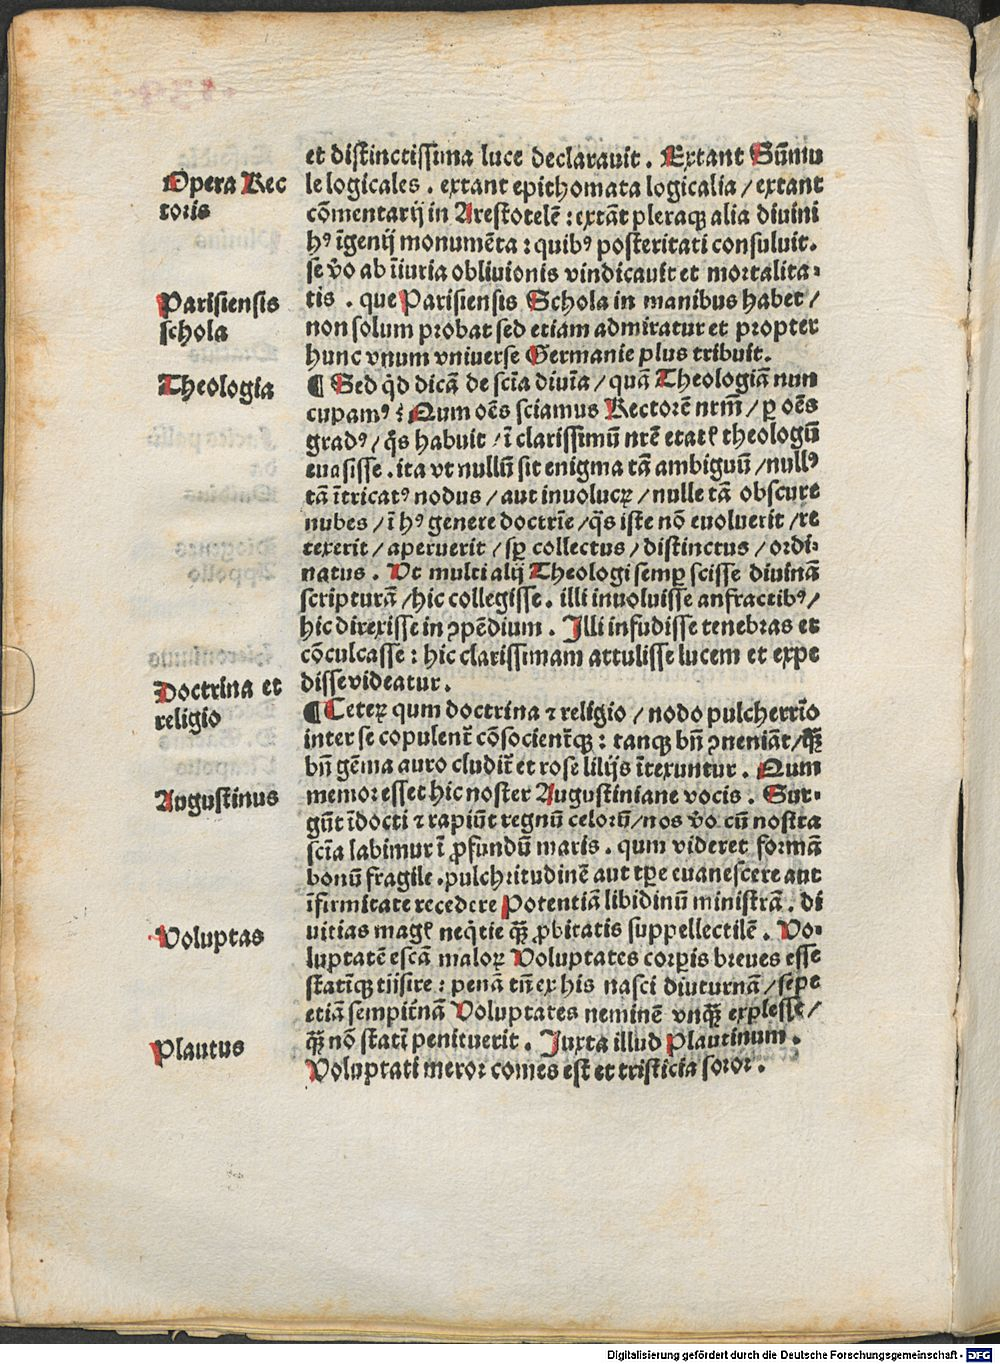 et distinctissima luce declarauit . Extant Sūmu
Opera Rec
toris
le logicales . extant epithomata logicalia / extant
cōmentarij in Arestotelē : extāt pleraqꝫ alia diuini
hꝰ īgenij monumēta : quibꝰ posteritati consuluit .
se v̄o ab iīuria obliuionis vindicauit et mortalita⸗
Parisiensis
schola
tis . que Parisiensis Schola in manibus habet /
non solum probat sed etiam admiratur et propter
hunc vnum vniuerse Germanie plus tribuit .
Theologia
¶ Sed qd̄ dicā de scīa diuīa / quā Theologiā nun
cupamꝰ ? Qum oēs sciamus Rectorē nrm̄ / ꝑ oēs
gradꝰ / q̄s habuit / ī clarissimū nrē etatꝭ theologū
euasisse . ita vt nullū sit enigma tā ambiguū / nullꝰ
tā ītricatꝰ nodus / aut inuolucꝝ / nulle tā obscure
nubes / ī hꝰ genere doctrīe / q̄s iste nō euoluerit / re
texerit / aperuerit / sꝑ collectus / distinctus / ordi⸗
natus . Vt multi alij Theologi semꝑ scisse diuinā
scripturā / hic collegisse . illi inuoluisse anfractibꝰ /
hic direxisse in ꝯpēdium . Illi infudisse tenebras et
cōculcasse : hic clarissimam attulisse lucem et expe
Doctrina et
religio
disse videatur .
¶ Ceteꝝ qum doctrina ⁊ religio / nodo pulcherrīo
inter se copulent᷑ cōsocient᷑qꝫ : tanqꝫ bn̄ ꝯueniāt / qꝫ̄
bn̄ gēma auro cludit᷑ et rose lilijs ītexuntur . Qum
Augustinus
memor esset hic noster Augustiniane vocis . Sur⸗
gūt īdocti ⁊ rapiūt regnū celorū / nos v̄o cū nostra
scīa labimur ī ꝓfundū maris . qum videret formā
bonū fragile . pulchritudinē aut tꝑe euanescere aut
īfirmitate recedere Potentiā libidinū ministrā . di
Voluptas
uitias magꝭ neq̄tie qꝫ̄ ꝓbitatis suppellectilē . Vo⸗
luptatē escā maloꝝ Voluptates corꝑis breues esse
statīqꝫ tiisire : penā tn̄ ex his nasci diuturnā / sepe
etiā sempit᷑nā Voluptates neminē vnqꝫ̄ explesse /
Plautus
qꝫ̄ nō statī penituerit . Juxta illud Plautinum .
Voluptati meror comes est et tristicia soror .
Digitalisierung gefördert durch die Deutsche Forschungsgemeinschaft - DFG